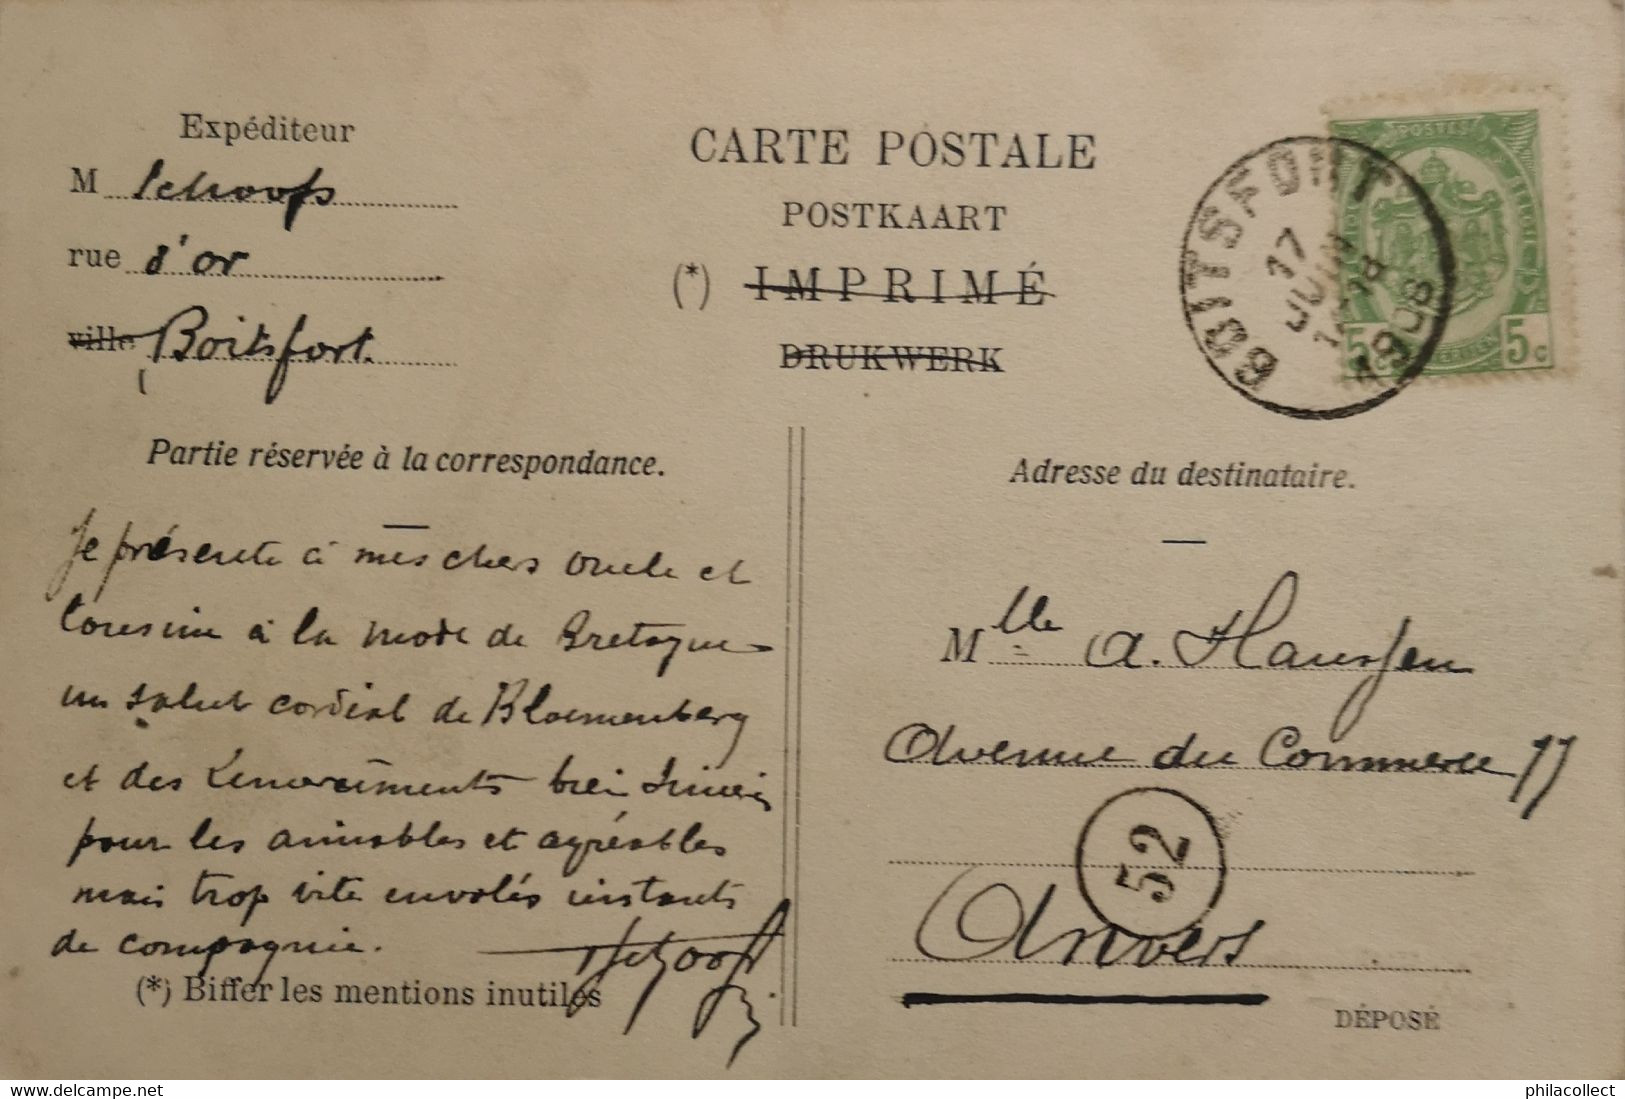 Expéditeur
M Schoofs
rue d'or
ville Boitsfort.
CARTE POSTALE
POSTKAART
(*) IMPRIMÉ
DRUKWERK
BOITSFORT
17
JUIN
1908
POSTES
5 5c
Partie réservée à la correspondance.
Je présente à mes chers oncle et
cousine à la mode de Bretagne
un salut cordial de Bloemenberg
et des remerciments bien
pour les aimables et agréables
mais trop vite envolés instants
de compagnie. Schoofs
(*) Biffer les mentions inutiles
Adresse du destinataire.
Mlle A. Hanssen
Avenue du Commerce 77
52
Anvers
DÉPOSÉ
*all items in the picture are for sale
philacollect